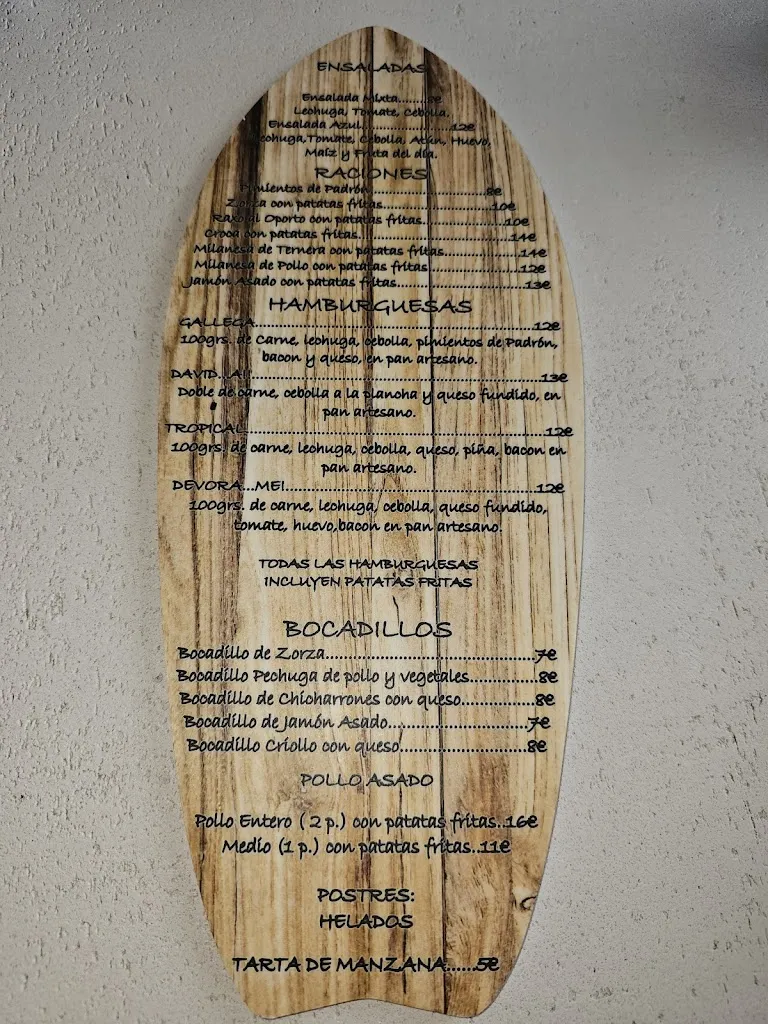 ENSALADAS
Ensalada Mixta........8e
Lechuga, Tomate, Cebolla,
Ensalada Azul.......................12e
Lechuga,Tomate, Cebolla, Atún, Huevo,
Maíz y Fruta del día.
RACIONES
Pimientos de Padrón............................8e
Zorza con patatas fritas..........................10e
Raxo al Oporto con patatas fritas....................10e
Croca con patatas fritas......................................14e
Milanesa de Ternera con patatas fritas...................14e
Milanesa de Pollo con patatas fritas.......................12e
Jamón Asado con patatas fritas................................13e
HAMBURGUESAS
GALLEGA......................................................................12e
100grs. de Carne, lechuga, cebolla, pimientos de Padrón,
bacon y queso, en pan artesano.
DAVID...A!!.....................................................................13e
Doble de carne, cebolla a la plancha y queso fundido, en
pan artesano.
TROPICAL.......................................................................12e
100grs. de carne, lechuga, cebolla, queso, piña, bacon en
pan artesano.
DEVORA...ME!...............................................................12e
100grs. de carne, lechuga, cebolla, queso fundido,
tomate, huevo,bacon en pan artesano.
TODAS LAS HAMBURGUESAS
INCLUYEN PATATAS FRITAS
BOCADILLOS
Bocadillo de Zorza.......................................7e
Bocadillo Pechuga de pollo y vegetales.............8e
Bocadillo de Chicharrones con queso..............8e
Bocadillo de Jamón Asado...........................7e
Bocadillo Criollo con queso.........................8e
POLLO ASADO
Pollo Entero ( 2 p.) con patatas fritas..16e
Medio (1 p.) con patatas fritas..11e
POSTRES:
HELADOS
TARTA DE MANZANA......5e